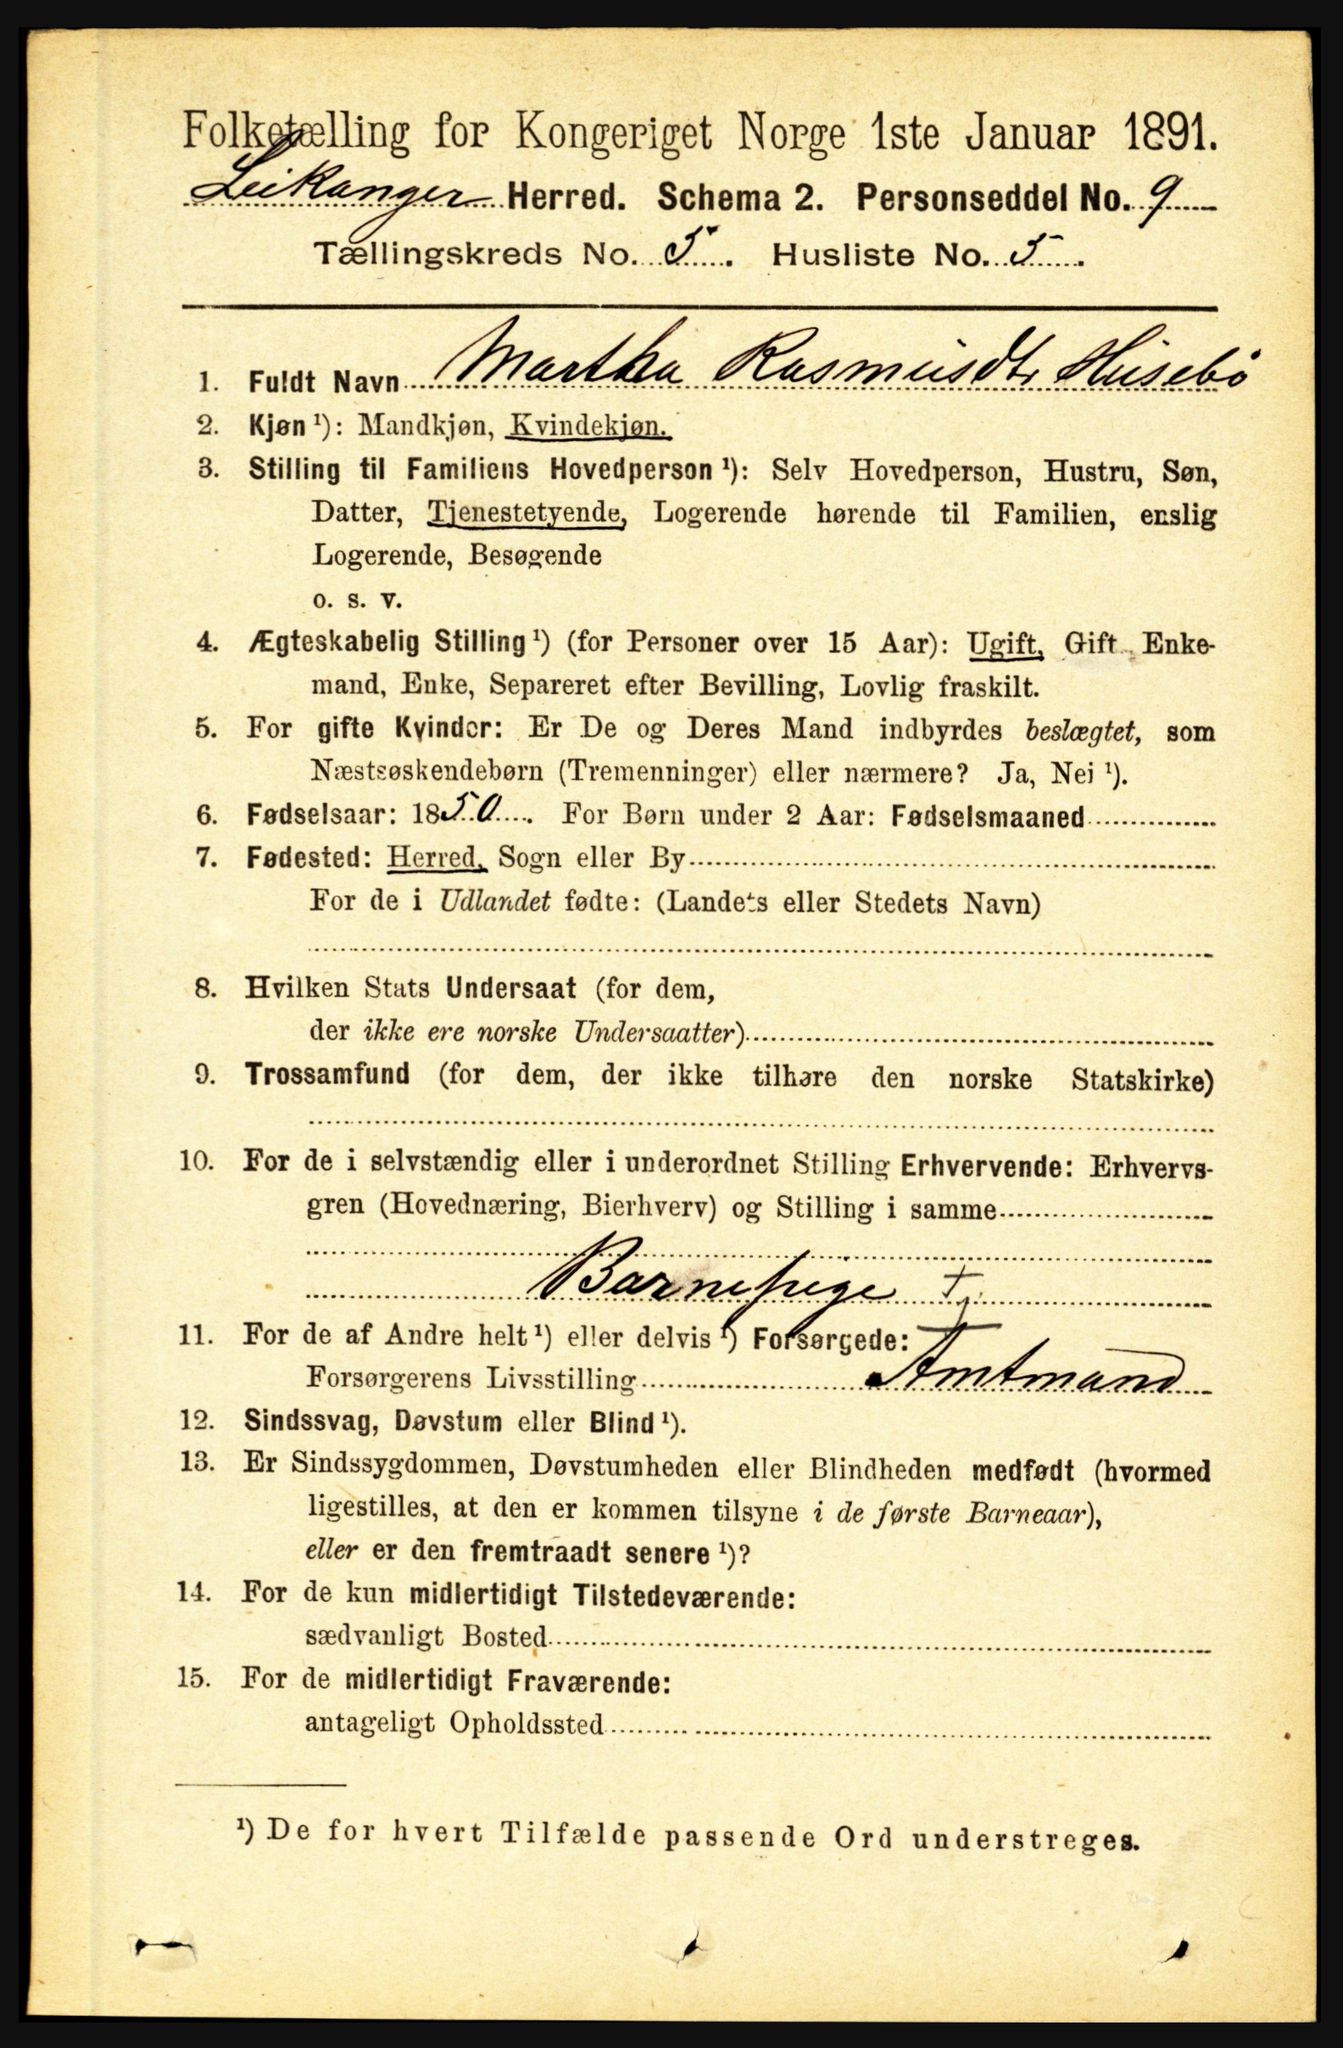 Folketælling for Kongeriget Norge 1ste Januar 1891.
Leikanger Herred. Schema 2. Personseddel No. 9
Tællingskreds No. 5. Husliste No. 5.
1. Fuldt Navn Martha Rasmusdtr Husebö
2. Kjøn ¹): Mandkjøn, Kvindekjøn.
3. Stilling til Familiens Hovedperson ¹): Selv Hovedperson, Hustru, Søn,
Datter, Tjenestetyende, Logerende hørende til Familien, enslig
Logerende, Besøgende
o. s. v.
4. Ægteskabelig Stilling ¹) (for Personer over 15 Aar): Ugift, Gift, Enke-
mand, Enke, Separeret efter Bevilling, Lovlig fraskilt.
5. For gifte Kvinder: Er De og Deres Mand indbyrdes beslægtet, som
Næstsøskendebørn (Tremenninger) eller nærmere? Ja, Nei ¹).
6. Fødselsaar: 1850. For Børn under 2 Aar: Fødselsmaaned
7. Fødested: Herred, Sogn eller By
For de i Udlandet fødte: (Landets eller Stedets Navn)
8. Hvilken Stats Undersaat (for dem,
der ikke ere norske Undersaatter)
9. Trossamfund (for dem, der ikke tilhøre den norske Statskirke)
10. For de i selvstændig eller i underordnet Stilling Erhvervende: Erhvervs-
gren (Hovednæring, Bierhverv) og Stilling i samme
Barnepige
11. For de af Andre helt ¹) eller delvis ¹) Forsørgede:
Forsørgerens Livsstilling Amtmand
12. Sindssvag, Døvstum eller Blind ¹).
13. Er Sindssygdommen, Døvstumheden eller Blindheden medfødt (hvormed
ligestilles, at den er kommen tilsyne i de første Barneaar),
eller er den fremtraadt senere ¹)?
14. For de kun midlertidigt Tilstedeværende:
sædvanligt Bosted
15. For de midlertidigt Fraværende:
antageligt Opholdssted
¹) De for hvert Tilfælde passende Ord understreges.